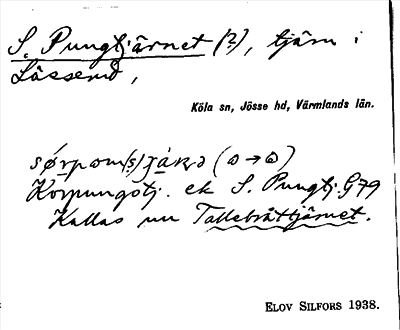 S. Pungtjärnet (?), tjärn i
Lässerud,
Köla sn, Jösse hd, Värmlands län.
sǿrpɷm(s)ʒáṇə (ɷ→ɷ)
Korpungstj. ek S. Pungtj. G79
Kallas nu Tallebråttjärnet.
ELOV SILFORS 1938.